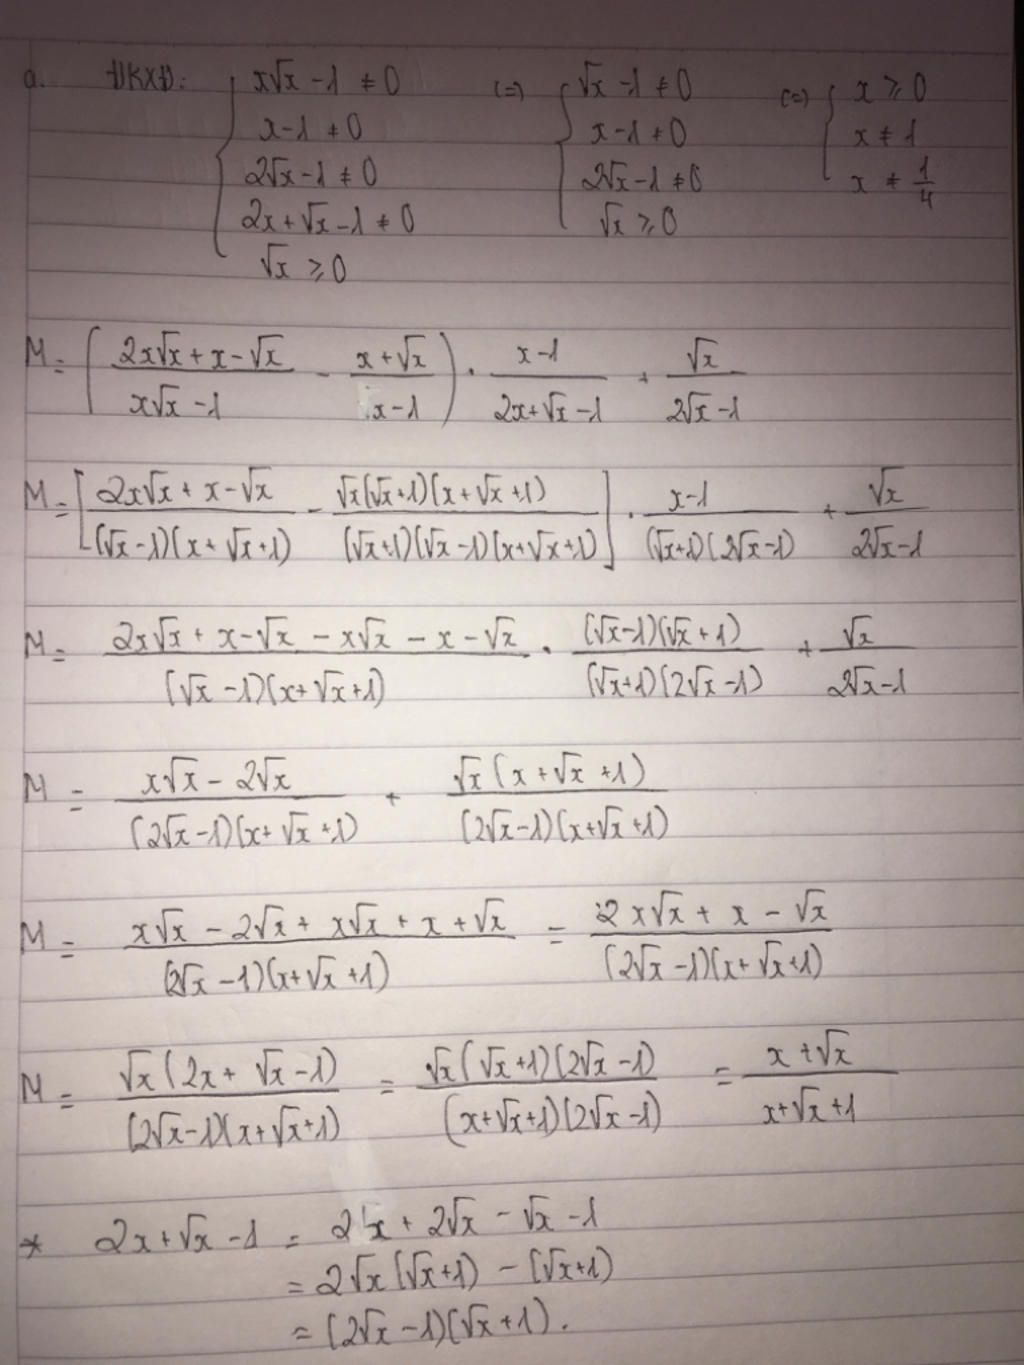 a. ĐKXĐ: { x√x - 1 ≠ 0 (=) { √x - 1 ≠ 0 (=) { x ≥ 0
x - 1 ≠ 0 x - 1 ≠ 0 x ≠ 1
2√x - 1 ≠ 0 2√x - 1 ≠ 0 x ≠ 1/4
2x + √x - 1 ≠ 0 √x ≥ 0
√x ≥ 0
M = ( (2x√x + x - √x)/(x√x - 1) - (x + √x)/(x - 1) ) . (x - 1)/(2x + √x - 1) + √x/(2√x - 1)
M = [ (2x√x + x - √x)/((√x - 1)(x + √x + 1)) - (√x(√x + 1)(x + √x + 1))/((√x + 1)(√x - 1)(x + √x + 1)) ] . (x - 1)/((√x + 1)(2√x - 1)) + √x/(2√x - 1)
M = (2x√x + x - √x - x√x - x - √x)/((√x - 1)(x + √x + 1)) . ((√x - 1)(√x + 1))/((√x + 1)(2√x - 1)) + √x/(2√x - 1)
M = (x√x - 2√x)/((2√x - 1)(x + √x + 1)) + (√x(x + √x + 1))/((2√x - 1)(x + √x + 1))
M = (x√x - 2√x + x√x + x + √x)/((2√x - 1)(x + √x + 1)) = (2x√x + x - √x)/((2√x - 1)(x + √x + 1))
M = (√x(2x + √x - 1))/((2√x - 1)(x + √x + 1)) = (√x(√x + 1)(2√x - 1))/((x + √x + 1)(2√x - 1)) = (x + √x)/(x + √x + 1)
* 2x + √x - 1 = 2x + 2√x - √x - 1
= 2√x(√x + 1) - (√x + 1)
= (2√x - 1)(√x + 1).